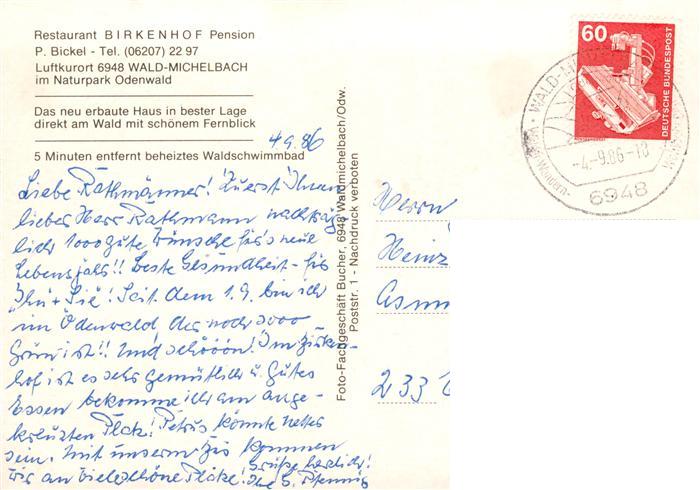 Restaurant BIRKENHOF Pension
P. Bickel - Tel. (06207) 22 97
Luftkurort 6948 WALD-MICHELBACH
im Naturpark Odenwald
Das neu erbaute Haus in bester Lage
direkt am Wald mit schönem Fernblick
5 Minuten entfernt beheiztes Waldschwimmbad
4.9.86
Liebe Rathmänner! Zuerst Ihnen
lieber Herr Rathmann nachträg
lich 1000 gute Wünsche für's neue
Lebensjahr!! Beste Gesundheit - für
Ihn + Sie! Seit dem 1.9. bin ich
im Odenwald, der noch sooo
Grün ist!! Und schööön! Im Birken-
hof ist es sehr gemütlich u. Gutes
Essen bekomme ich am ange-
kreuzten Platz! Petrus könnte netter
sein. Mit unserm kommen
wir an viele schöne Plätze! Grüße herzlich!
Ihre S. Pfennig
Foto-Fachgeschäft Bucher, 6948 Waldmichelbach/Odw.
Poststr. 1 - Nachdruck verboten
Herrn
Heinz
233
60
DEUTSCHE BUNDESPOST
WALD-MI
-4.-9.86-18
6948